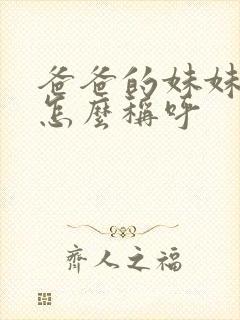 爸爸的妹妹
怎麼稱呼
齊人之福